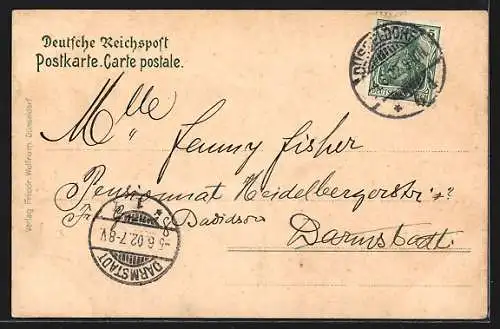 Deutsche Reichspost
Postkarte. Carte postale.
DÜSSELDORF
5
Mlle Jenny Fisher
Pensionnat Heidelbergerstr
Fr Davidson
Darmstadt
5.6.02.7-8V.
DARMSTADT
Verlag Friedr. Wolfrum, Düsseldorf